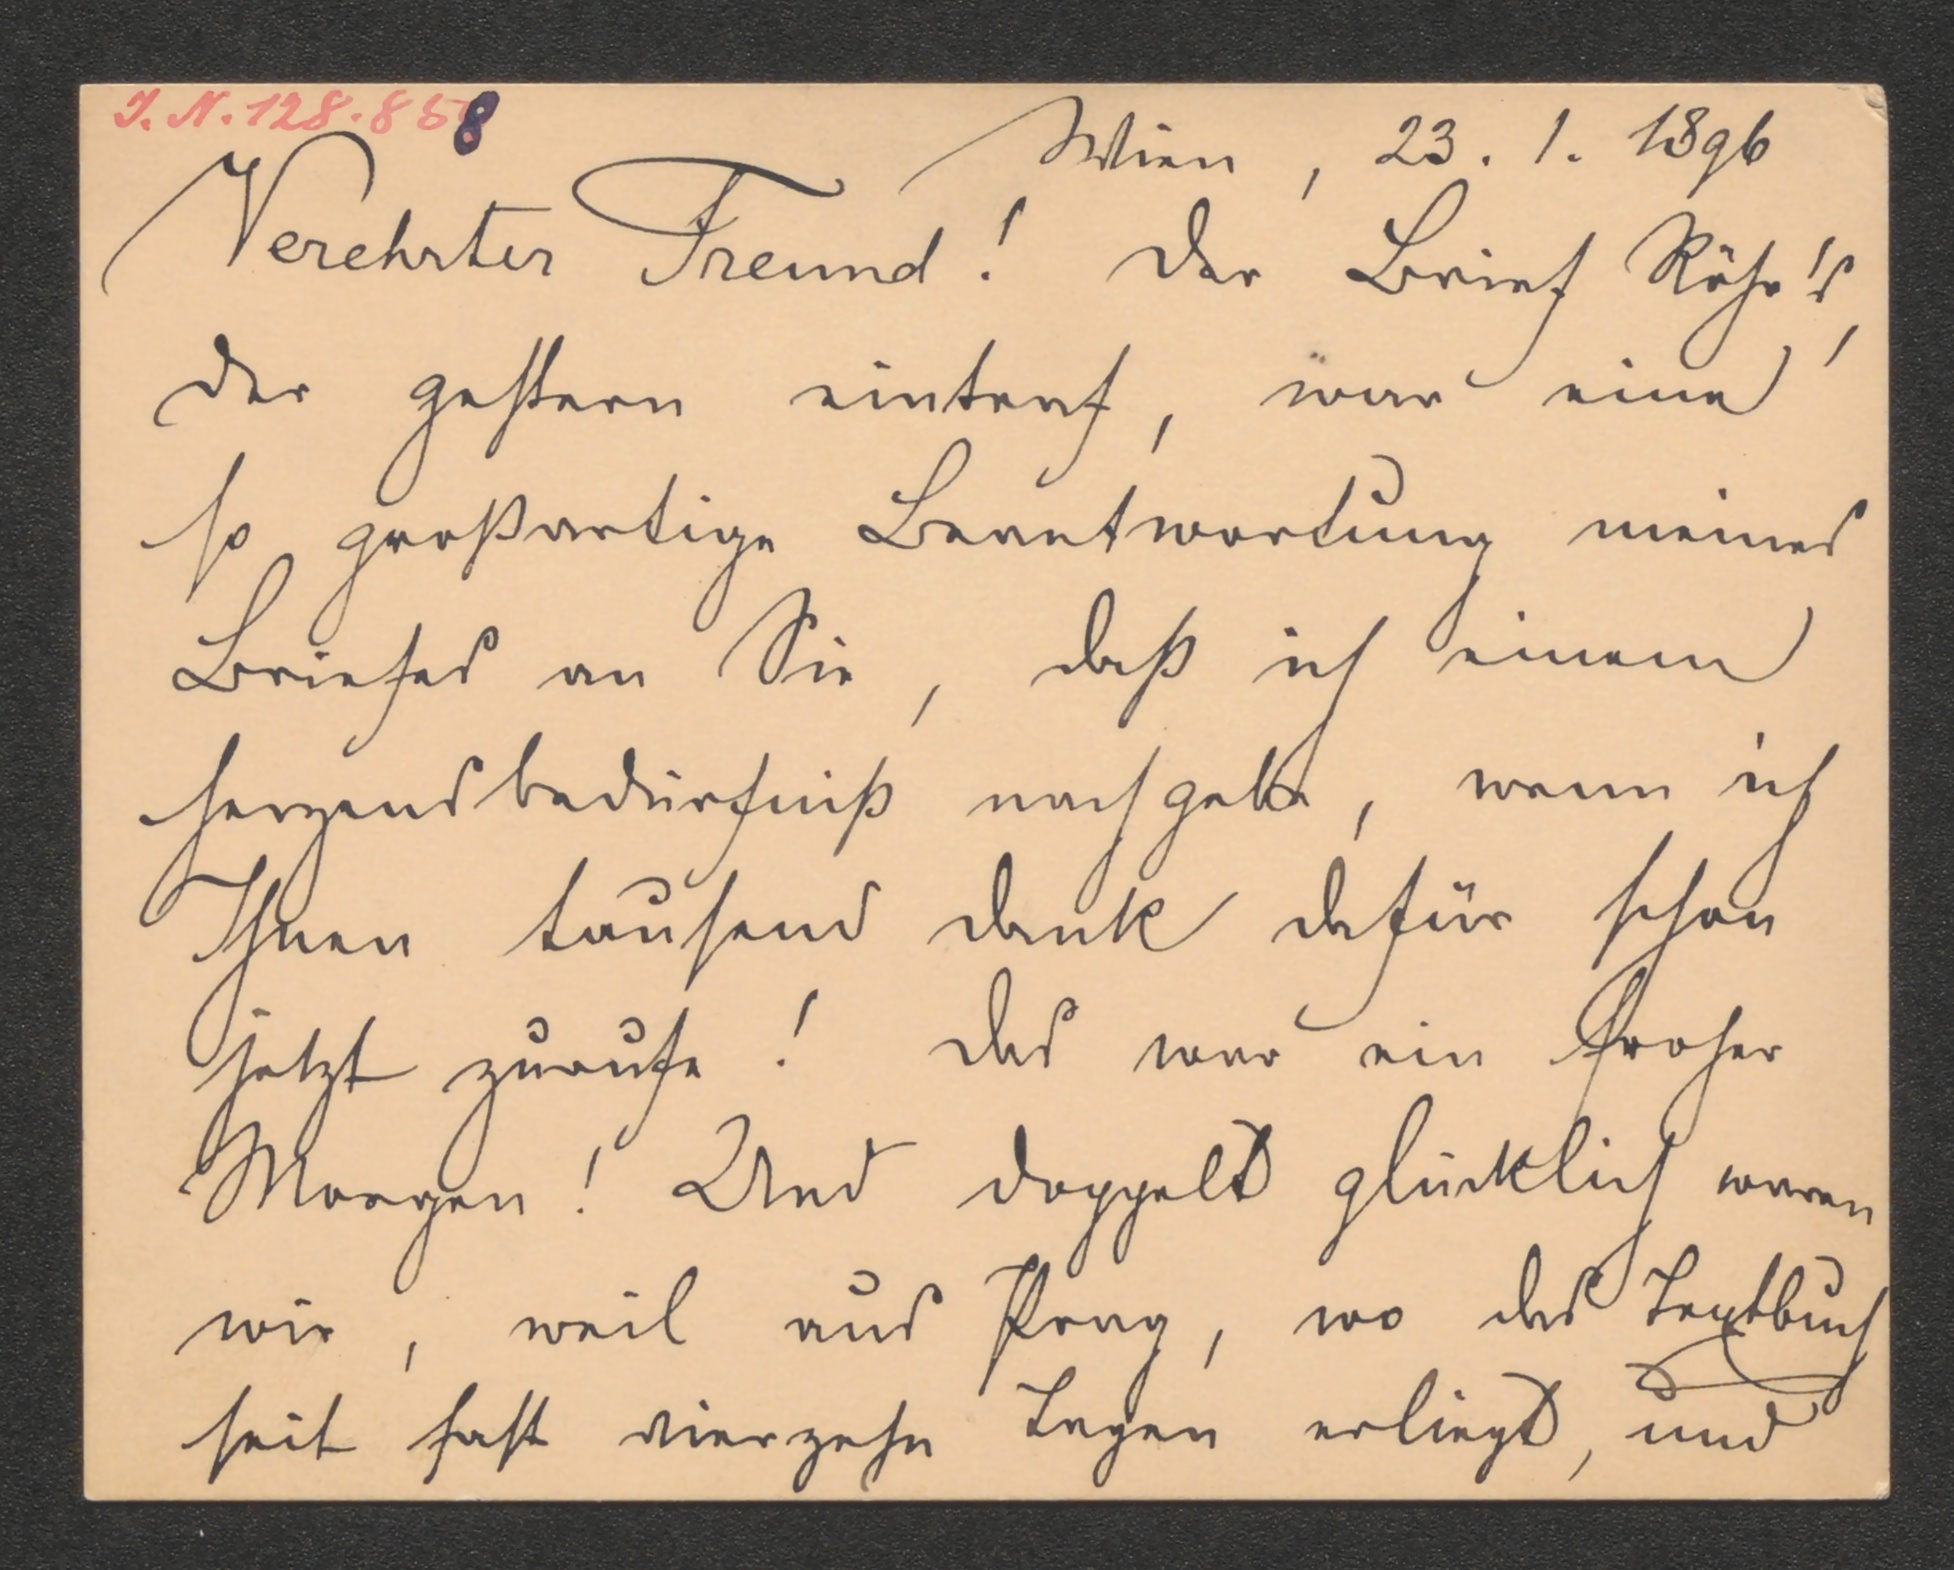 I. N. 128.858
Wien, 23. 1. 1896
Verehrter Freund! Der Brief Röhr's,
der gestern eintraf, war eine
so großartige Beantwortung meines
Briefes an Sie, daß ich einem
Herzensbedürfniß nachgebe, wenn ich
Ihnen tausend Dank dafür schon
jetzt zurufe! Das war ein froher
Morgen! Und doppelt glücklich waren
wir, weil aus Prag, wo das Textbuch
seit fast vierzehn Tagen erliegt, und